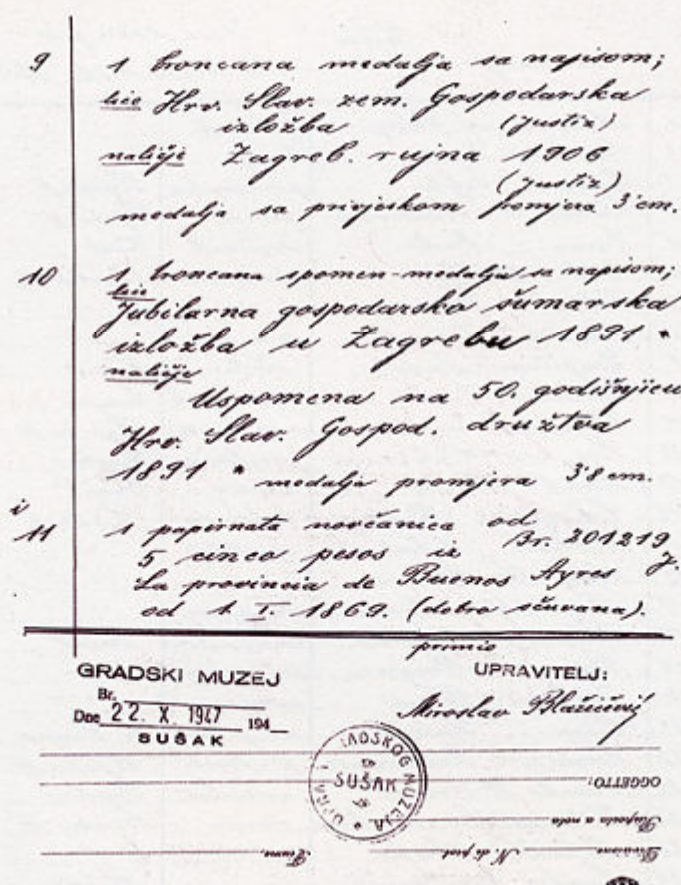 9 1 broncana medalja sa napisom;
lice Hrv. Slav. zem. Gospodarska
izložba (Justiz)
naličje Zagreb. rujna 1906
(Justiz)
medalja sa privjeskom promjera 3 cm.
10 1 broncana spomen-medalja sa napisom;
lice
Jubilarna gospodarsko šumarska
izložba u Zagrebu 1891 *
naličje
Uspomena na 50. godišnjicu
Hrv. Slav. Gospod. družtva
1891 * medalja promjera 3'8 cm.
i
11 1 papirnata novčanica od
5 cinco pesos iz Br. 201219
La provincia de Buenos Ayres J.
od 1. I. 1869. (dobro sčuvana).
primio
GRADSKI MUZEJ UPRAVITELJ:
Br.
Dne 22. X. 1947 194
SUŠAK
Miroslav
UPRAVA GRADSKOG MUZEJA * SUŠAK
OGGETTO:
Risposta a nota
Divisione N. di prot. Fiume,